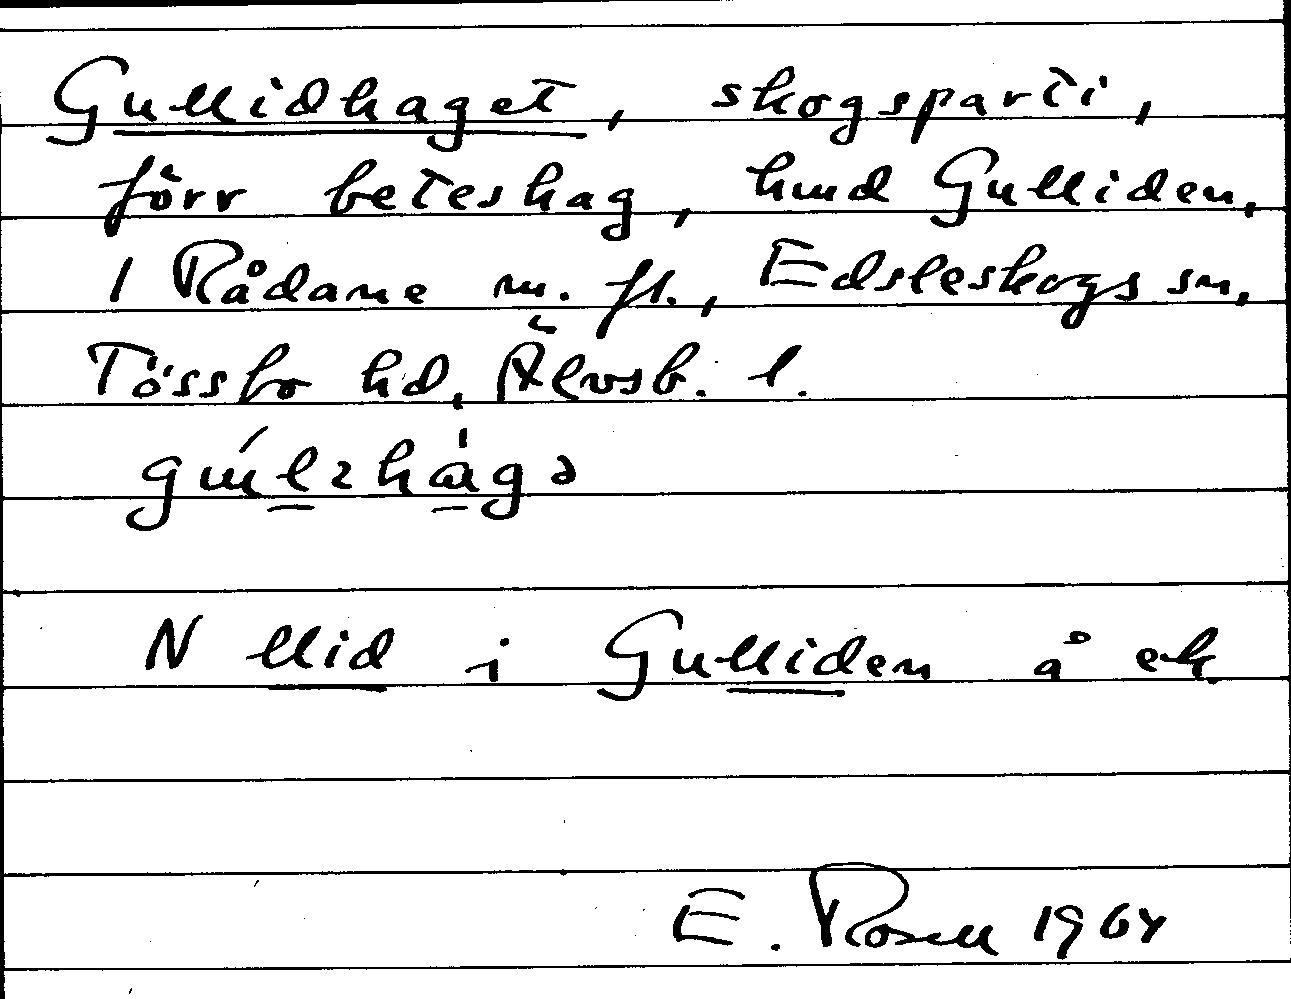 Gullidhaget, skogsparti,
förr beteshag, hmd Gulliden,
1 Rådane m. fl., Edsleskogs sn,
Tössbo hd, Älvsb. l.
N llid i Gulliden å ek
E. Rosell 1964